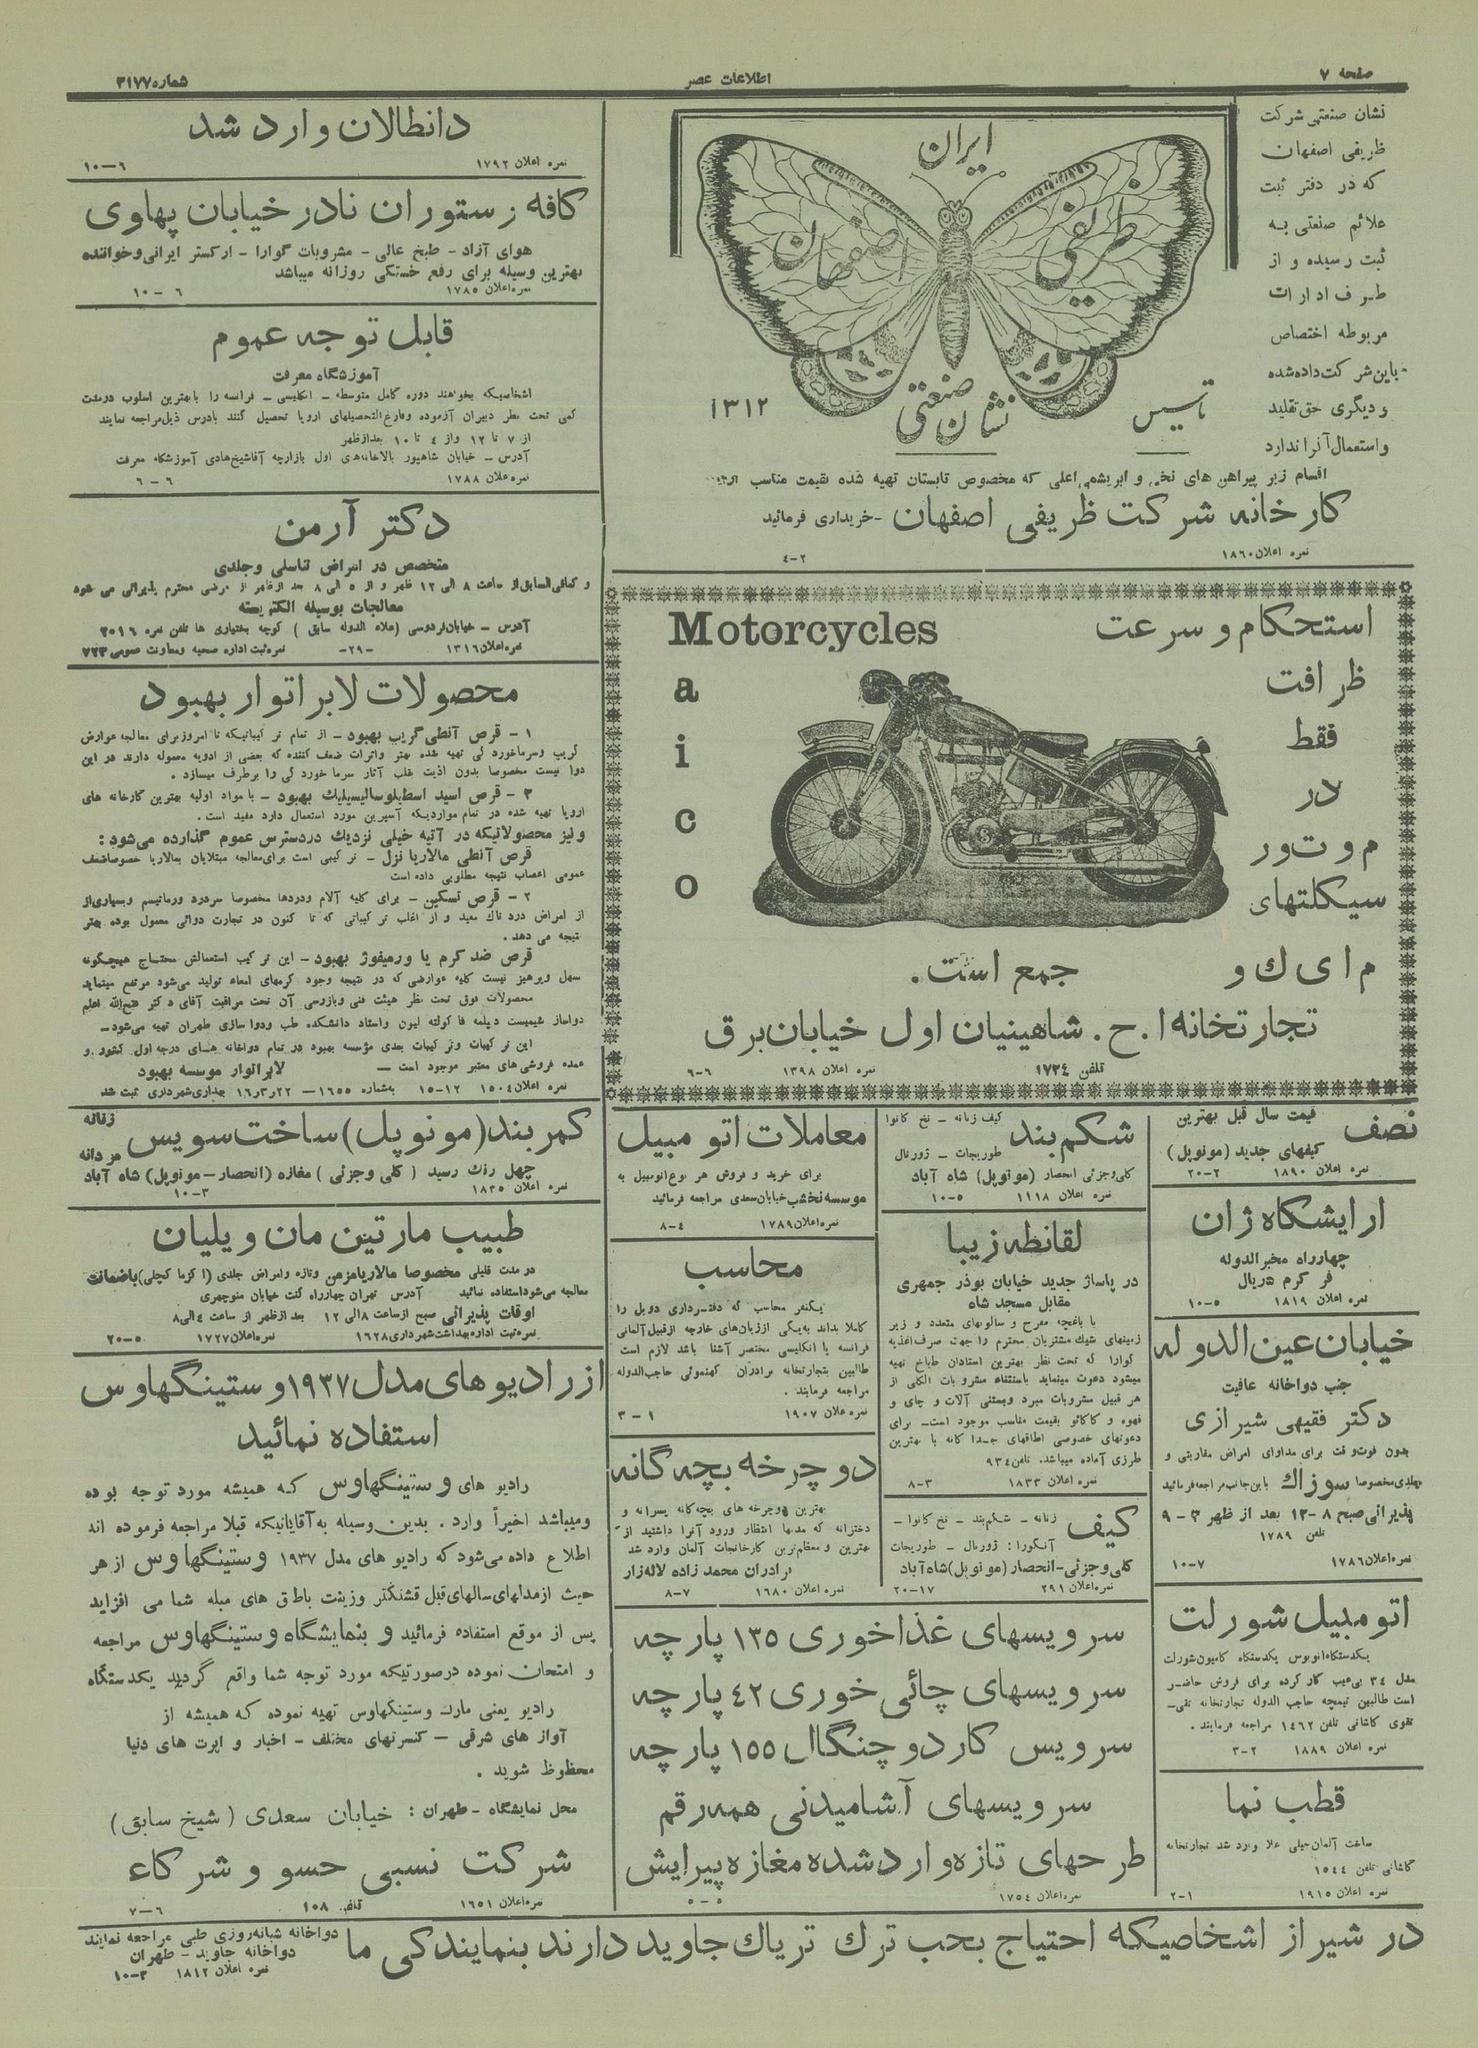 صفحه ۷
اطلاعات عصر
شماره ۳۱۷۷
نشان صنعتی شرکت
ظریفی اصفهان
که در دفتر ثبت
علائم صنعتی به
ثبت رسیده و از
طرف ادارات
مربوطه اختصاص
باین شرکت داده شده
و دیگری حق تقلید
و استعمال آنرا ندارد
ایران
ظریفی
اصفهان
نشان صنعتی
تاسیس
۱۳۱۲
اقسام زیر پیراهن های نخی و ابریشمی اعلی که مخصوص تابستان تهیه شده بقیمت مناسب از
کارخانه شرکت ظریفی اصفهان - خریداری فرمائید
نمره اعلان ۱۸۶۰
۴-۲
Motorcycles
a
i
c
o
استحکام و سرعت
ظرافت
فقط
در
موتور
سیکلتهای
م ای ك و
جمع است.
تجارتخانه ا . ح . شاهینیان اول خیابان برق
تلفن ۱۷۳۴
نمره اعلان ۱۳۹۸
۶-۶
نصف
قیمت سال قبل بهترین
کیفهای جدید (مونوپل)
نمره اعلان ۱۸۹۰
۲۰-۲
ارایشگاه ژان
چهارراه مخبرالدوله
فر کرم ۵ ریال
نمره اعلان ۱۸۱۹
۱۰-۵
خیابان عین الدوله
جنب دواخانه عافیت
دکتر فقیهی شیرازی
بدون فوت وقت برای مداوای امراض مقاربتی و
جلدی مخصوصا سوزاك باین جانب مراجعه فرمائید
پذیرائی صبح ۸-۱۲ بعد از ظهر ۳-۹
تلفن ۱۷۸۹
نمره اعلان ۱۷۸۶
۱۰-۷
اتومبیل شورلت
یکدستگاه اتوبوس یکدستگاه کامیون شورلت
مدل ۳۴ بی عیب کار کرده برای فروش حاضر
است طالبین تیمچه حاجب الدوله تجارتخانه تقی-
تقوی کاشانی تلفن ۱۴۶۲ مراجعه فرمایند.
نمره اعلان ۱۸۸۹
۳-۲
قطب نما
ساعت آلمان خیلی علا وارد شد تجارتخانه
کاشانی تلفن ۱۵۴۴
نمره اعلان ۱۹۱۵
۲-۱
شکم بند
کیف زنانه - نخ کانوا
طوریجات - ژورنال
کلی و جزئی انحصار (مونوپل) شاه آباد
نمره اعلان ۱۱۱۸
۱۰-۵
لقانطه زیبا
در پاساژ جدید خیابان بوذر جمهری
مقابل مسجد شاه
با باغچه مفرح و سالونهای متعدد و زیر
زمینهای شیك مشتریان محترم را جهت صرف اغذیه
گوارا که تحت نظر بهترین استادان طباخ تهیه
میشود دعوت مینماید باستثناء مشروبات الکلی از
هر قبیل مشروبات مبرد و بستنی آلات و چای و
قهوه و کاکائو بقیمت مناسب موجود است- برای
دعوتهای خصوصی اطاقهای جداگانه با بهترین
طرزی آماده میباشد. تلفن ۹۳۴
نمره اعلان ۱۸۳۳
۸-۳
کیف
زنانه - شکم بند - نخ کانوا -
آنکورا : ژورنال - طوریجات
کلی و جزئی - انحصار (مونوپل) شاه آباد
نمره اعلان ۲۹۱
۲۰-۱۷
معاملات اتومبیل
برای خرید و فروش هر نوع اتومبیل به
موسسه نخشب خیابان سعدی مراجعه فرمائید
نمره اعلان ۱۷۸۹
۸-۴
محاسب
یکنفر محاسب که دفترداری دوبل را
کاملا بداند به یکی از زبان های خارجه از قبیل آلمانی
فرانسه یا انگلیسی مختصر آشنا باشد لازم است
طالبین بتجارتخانه برادران کهنموئی حاجب الدوله
مراجعه فرمایند .
نمره اعلان ۱۹۰۷
۳-۱
دوچرخه بچه گانه
بهترین دوچرخه های بچه گانه پسرانه و
دخترانه که مدتها انتظار ورود آنرا داشتید از
بهترین و معظم ترین کارخانجات آلمان وارد شد
برادران محمد زاده لاله زار
نمره اعلان ۱۶۸۰
۸-۷
سرویسهای غذاخوری ۱۳۵ پارچه
سرویسهای چائی خوری ۴۲ پارچه
سرویس کارد و چنگال ۱۵۵ پارچه
سرویسهای آشامیدنی همه رقم
طرحهای تازه وارد شده مغازه پیرایش
نمره اعلان ۱۷۵۴
۵-۵
دانطالان وارد شد
نمره اعلان ۱۷۹۲
۱۰-۶
کافه رستوران نادر خیابان پهلوی
هوای آزاد - طبخ عالی - مشروبات گوارا - ارکستر ایرانی و خواننده
بهترین وسیله برای رفع خستگی روزانه میباشد
نمره اعلان ۱۷۸۵
۱۰-۶
قابل توجه عموم
آموزشگاه معرفت
اشخاصیکه بخواهند دوره کامل متوسطه - انگلیسی - فرانسه را با بهترین اسلوب در مدت
کمی تحت نظر دبیران آزموده و فارغ التحصیلهای اروپا تحصیل کنند بادرس ذیل مراجعه نمایند
از ۷ تا ۱۲ و از ۴ تا ۱۰ بعد از ظهر
آدرس - خیابان شاهپور بالاخانه های اول بازارچه آقا شیخ هادی آموزشگاه معرفت
نمره علان ۱۷۸۸
۶-۶
دکتر آرمن
متخصص در امراض تناسلی و جلدی
و کمافی السابق از ساعت ۸ الی ۱۲ ظهر و از ۵ الی ۸ بعد از ظهر از مرضی محترم پذیرائی می شود
معالجات بوسیله الکتریسته
آدرس - خیابان فردوسی (علاء الدوله سابق) کوچه بختیاری ها تلفن نمره ۳۰۱۶
نمره اعلان ۱۳۱۶
-۲۹-
نمره ثبت اداره صحیه و معاونت عمومی ۷۲۳
محصولات لابراتوار بهبود
۱ - قرص آنطی گریپ بهبود - از تمام ترکیباتیکه تا امروز برای معالجه عوارض
گریپ و سرماخوردگی تهیه شده بهتر و اثرات ضعف کننده که بعضی از ادویه معموله دارند در این
دوا نیست مخصوصا بدون اذیت قلب آثار سرما خوردگی را برطرف میسازد .
۲ - قرص اسید استیلوسالیسیلیك بهبود - با مواد اولیه بهترین کارخانه های
اروپا تهیه شده در تمام مواردیکه آسپرین مورد استعمال دارد مفید است .
و نیز محصولاتیکه در آتیه خیلی نزدیك در دسترس عموم گذارده می شود :
قرص آنطی مالاریا نزل - ترکیبی است برای معالجه مبتلایان بمالاریا خصوصا ضعف
عمومی اعصاب نتیجه مطلوبی داده است
۲ - قرص تسکین - برای کلیه آلام و دردها مخصوصا سردرد و رماتیسم و بسیاری از
از امراض دردناك مفید و از اغلب ترکیباتی که تا کنون در تجارت دوائی معمول بوده بهتر
نتیجه می دهد .
قرص ضد کرم یا ورمیفوژ بهبود - این ترکیب استعمالش محتاج هیچگونه
سهل و پرهیز نیست کلیه عوارضی که در نتیجه وجود کرمهای امعاء تولید می شود مرتفع مینماید
محصولات فوق تحت نظر هیئت فنی و بازرسی آن تحت مراقبت آقای دکتر فتح الله اعلم
دواساز شیمیست دیپلمه فاکولته لیون و استاد دانشکده طب و دواسازی طهران تهیه می شود -
این ترکیبات و ترکیبات بعدی مؤسسه بهبود در تمام دواخانه های درجه اول کشور و
عمده فروشی های معتبر موجود است -
لابراتوار موسسه بهبود
نمره اعلان ۱۵۰۴
۱۵-۱۲
به شماره ۱۶۵۵ - ۲۲ر۳ر۱۶ بهداری شهرداری ثبت شد
کمربند (مونوپل) ساخت سویس زنانه مردانه
چهل رنك رسید (کلی و جزئی) مغازه (انحصار - مونوپل) شاه آباد
نمره اعلان ۱۸۳۵
۱۰-۳
طبیب مارتین مانویلیان
در مدت قلیلی مخصوصا مالاریا مزمن و تازه و امراض جلدی (اکزما کچلی) باضمانت
معالجه می شود استفاده نمائید آدرس تهران چهارراه کنت خیابان منوچهری
اوقات پذیرائی صبح از ساعت ۸ الی ۱۲ بعد از ظهر از ساعت ۴ الی ۸
نمره ثبت اداره بهداشت شهرداری ۱۶۲۸
نمره اعلان ۱۷۲۷
۲۰-۵
از رادیوهای مدل ۱۹۳۷ وستینگهاوس
استفاده نمائید
رادیو های وستینگهاوس که همیشه مورد توجه بوده
و میباشد اخیراً وارد . بدین وسیله به آقایانیکه قبلا مراجعه فرموده اند
اطلاع داده می شود که رادیو های مدل ۱۹۳۷ وستینگهاوس از هر
حیث از مدلهای سالهای قبل قشنگتر و زینت باطاق های مبله شما می افزاید
پس از موقع استفاده فرمائید و بنمایشگاه وستینگهاوس مراجعه
و امتحان نموده در صورتیکه مورد توجه شما واقع گردید یکدستگاه
رادیو یعنی مارك وستینگهاوس تهیه نموده که همیشه از
آواز های شرقی - کنسرتهای مختلف - اخبار و اپرت های دنیا
محظوظ شوید .
محل نمایشگاه - طهران : خیابان سعدی (شیخ سابق)
شرکت نسبی حسو و شرکاء
نمره اعلان ۱۶۵۱
تلفن ۱۰۸
۷-۶
در شیراز اشخاصیکه احتیاج بحب ترك تریاك جاوید دارند بنمایندگی ما
دواخانه شبانه روزی طبی مراجعه نمایند
دواخانه جاوید - طهران
نمره اعلان ۱۸۱۲
۱۰-۳